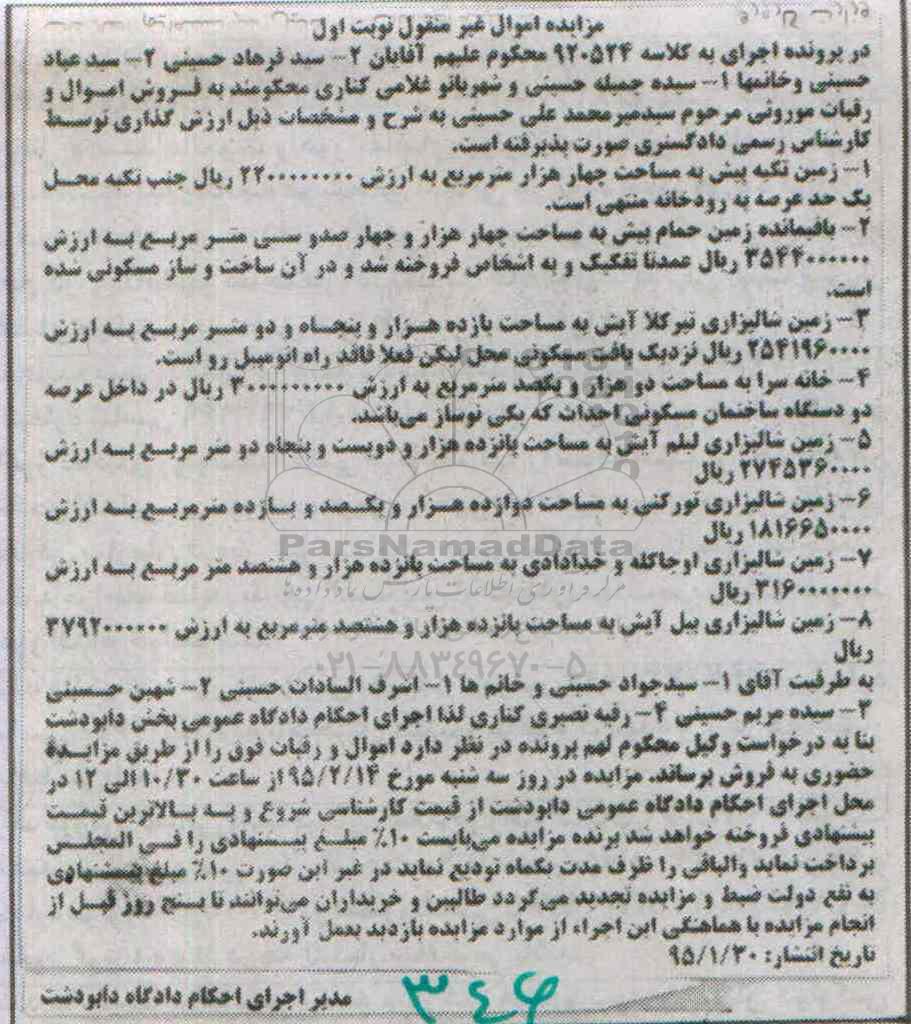 مزایده اموال غیر منقول نوبت اول
در پرونده اجرای به کلاسه ۹۲۰۵۲۴ محکوم علیهم آقایان ۲- سید فرهاد حسینی ۲- سید عباد
حسینی وخانمها ۱- سیده جمیله حسینی و شهربانو غلامی کناری محکومند به فروش اموال و
رقبات موروثی مرحوم سیدمیرمحمد علی حسینی به شرح و مشخصات ذیل ارزش گذاری توسط
کارشناس رسمی دادگستری صورت پذیرفته است.
۱- زمین تکیه پیش به مساحت چهار هزار مترمربع به ارزش ۲۲۰۰۰۰۰۰۰۰ ریال جنب تکیه محل
یک حد عرصه به رودخانه منتهی است.
۲- باقیمانده زمین حمام پیش به مساحت چهار هزار و چهار صدو سی متر مربع به ارزش
۳۵۴۴۰۰۰۰۰۰ ریال عمدتا تفکیک و به اشخاص فروخته شد و در آن ساخت و ساز مسکونی شده
است.
۳- زمین شالیزاری تیرکلا آیش به مساحت یازده هزار و پنجاه و دو متر مربع به ارزش
۲۵۴۱۹۶۰۰۰۰ ریال نزدیک بافت مسکونی محل لیکن فعلا فاقد راه اتومبیل رو است.
۴- خانه سرا به مساحت دو هزار و یکصد مترمربع به ارزش ۳۰۰۰۰۰۰۰۰۰ ریال در داخل عرصه
دو دستگاه ساختمان مسکونی احداث که یکی نوساز می‌باشد.
۵- زمین شالیزاری لیلم آیش به مساحت پانزده هزار و دویست و پنجاه دو متر مربع به ارزش
۲۷۴۵۳۶۰۰۰۰ ریال
۶- زمین شالیزاری تورکتی به مساحت دوازده هزار و یکصد و یازده مترمربع به ارزش
۱۸۱۶۶۵۰۰۰۰ ریال
ParsNamadData
۷- زمین شالیزاری اوجاکله و خدادادی به مساحت پانزده هزار و هشتصد متر مربع به ارزش
۳۱۶۰۰۰۰۰۰۰ ریال
مرکز فرآوری اطلاعات پارس نماد داده ها
۸- زمین شالیزاری بیل آیش به مساحت پانزده هزار و هشتصد مترمربع به ارزش ۳۷۹۲۰۰۰۰۰۰
ریال
۰۲۱-۸۸۳۴۹۶۷۰-۵
به طرفیت آقای ۱- سیدجواد حسینی و خانم ها ۱- اشرف السادات حسینی ۲- شهین حسینی
۳- سیده مریم حسینی ۴- رقیه نصیری کناری لذا اجرای احکام دادگاه عمومی بخش دابودشت
بنا به درخواست وکیل محکوم لهم پرونده در نظر دارد اموال و رقبات فوق را از طریق مزایده
حضوری به فروش برساند. مزایده در روز سه شنبه مورخ ۹۵/۲/۱۴ از ساعت ۱۰/۳۰ الی ۱۲ در
محل اجرای احکام دادگاه عمومی دابودشت از قیمت کارشناسی شروع و به بالاترین قیمت
پیشنهادی فروخته خواهد شد برنده مزایده می‌بایست ۱۰٪ مبلغ پیشنهادی را فی المجلس
پرداخت نماید والباقی را ظرف مدت یکماه تودیع نماید در غیر این صورت ۱۰٪ مبلغ پیشنهادی
به نفع دولت ضبط و مزایده تجدید می‌گردد طالبین و خریداران می‌توانند تا پنج روز قبل از
انجام مزایده با هماهنگی این اجراء از موارد مزایده بازدید بعمل آورند.
تاریخ انتشار: ۹۵/۱/۳۰
مدیر اجرای احکام دادگاه دابودشت
۳۴۶